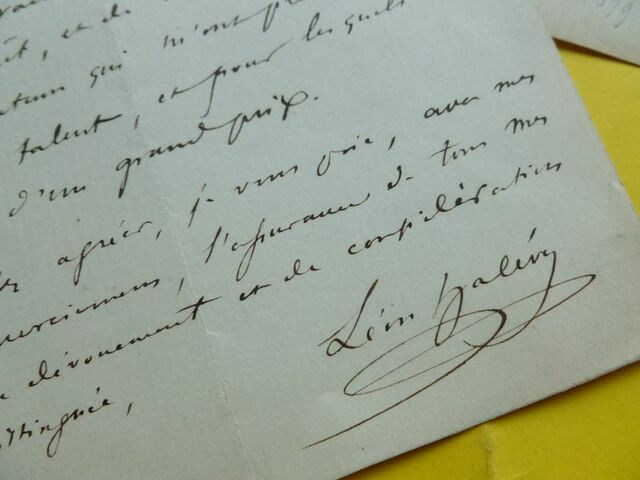 et de
qui m'ont
talent, et pour lesquels
d'un grand prix.
agréer, je vous prie, avec mes
remerciemens, l'assurance de tous mes
dévouement et de considération
distinguée,
Léon halévy